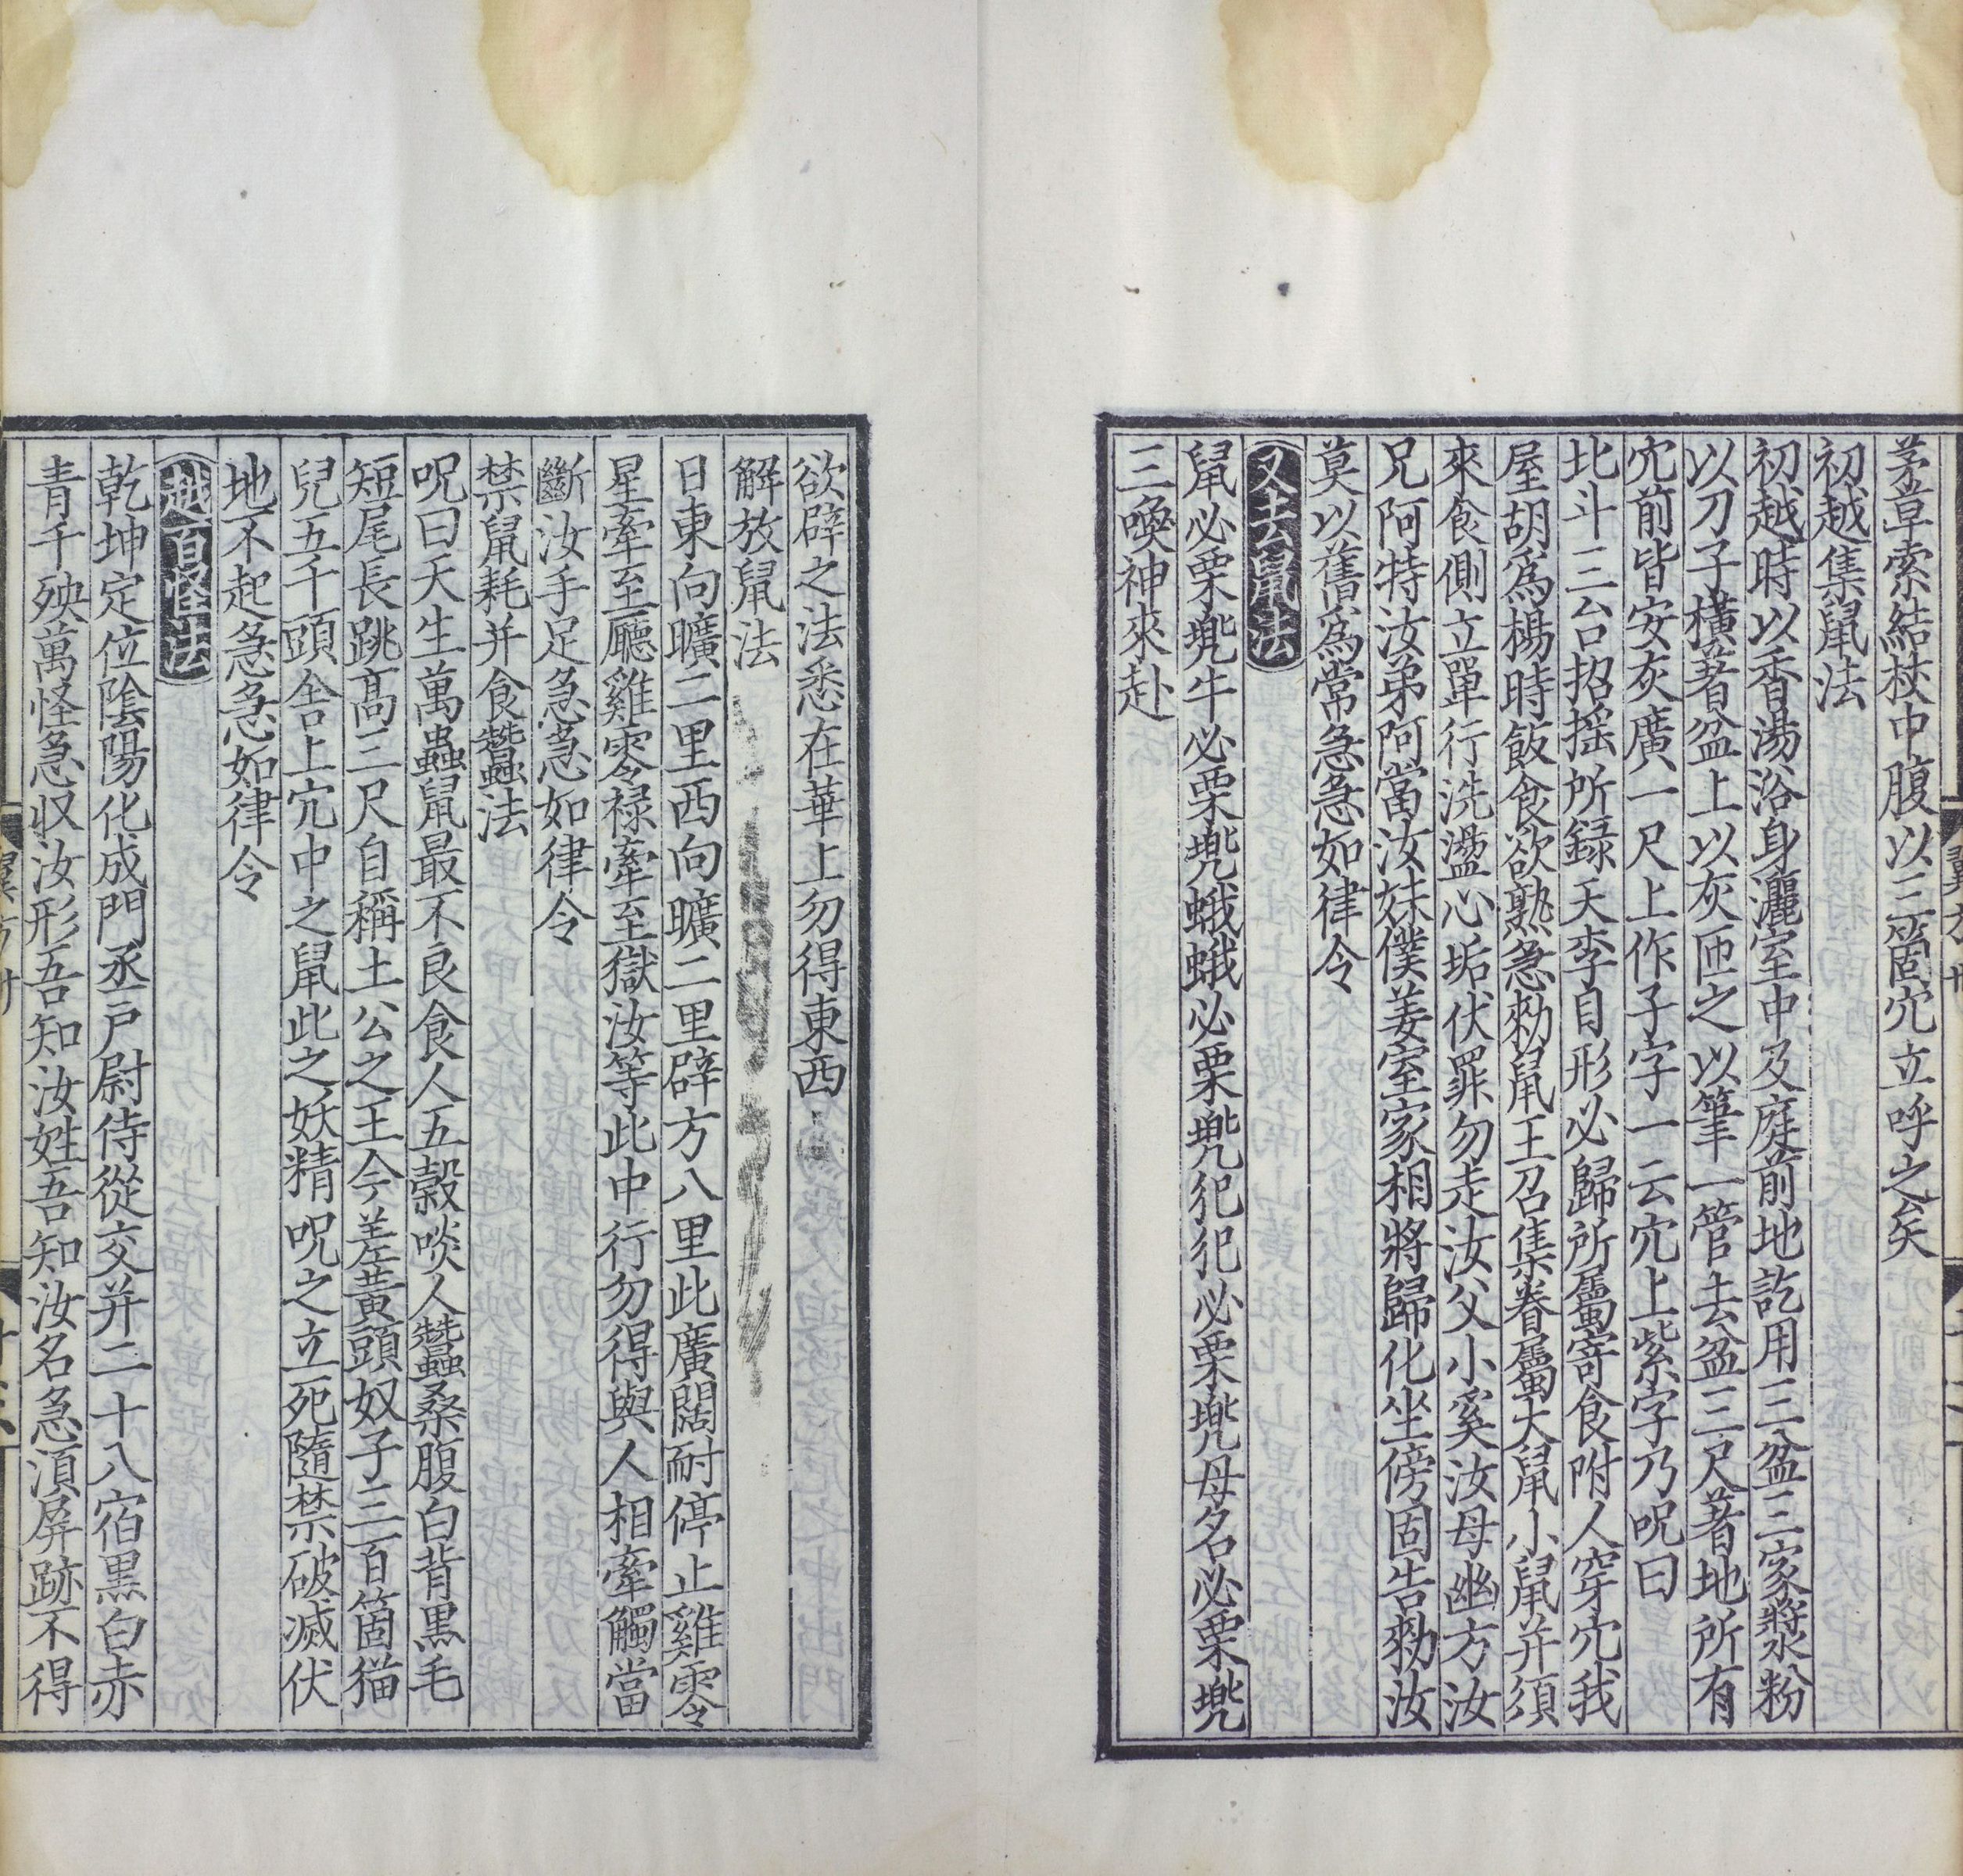 茅草索結杖中腹以三箇穴立呼之矣
初越集鼠法
初越時以香湯浴身灑室中及庭前地訖用三盆三家漿粉
以刀子橫著盆上以灰匝之以筆一管去盆三尺著地所有
穴前皆安灰廣一尺上作子字一云穴上紫字乃呪曰
北斗三台招摇所録天李自形必歸所屬寄食附人穿穴我
屋胡為楊時飯食欲熟急勑鼠王召集眷屬大鼠小鼠并須
來食側立單行洗盪心垢伏罪勿走汝父小奚汝母幽方汝
兄阿特汝弟阿當汝妹僕姜室家相將歸化坐傍固告勑汝
莫以舊為常急急如律令
又去鼠法
鼠必栗兠牛必栗兠蛾蛾必栗兠犯犯必栗兠母名必栗兠
三喚神來赴
欲辟之法悉在華上勿得東西
解放鼠法
日東向曠二里西向曠二里辟方八里此廣闊耐停止雞零
星牽至廳雞零禄牽至獄汝等此中行勿得與人相牽觸當
斷汝手足急急如律令
禁鼠耗并食蠶法
呪曰天生萬蟲鼠最不良食人五穀啖人蠶桑腹白背黑毛
短尾長跳髙三尺自稱土公之王今差黄頭奴子三百箇猫
兒五千頭舍上穴中之鼠此之妖精呪之立死隨禁破滅伏
地不起急急如律令
越百怪法
乾坤定位陰陽化成門丞户尉侍從交并二十八宿黒白赤
青千殃萬怪急収汝形吾知汝姓吾知汝名急湏屏跡不得